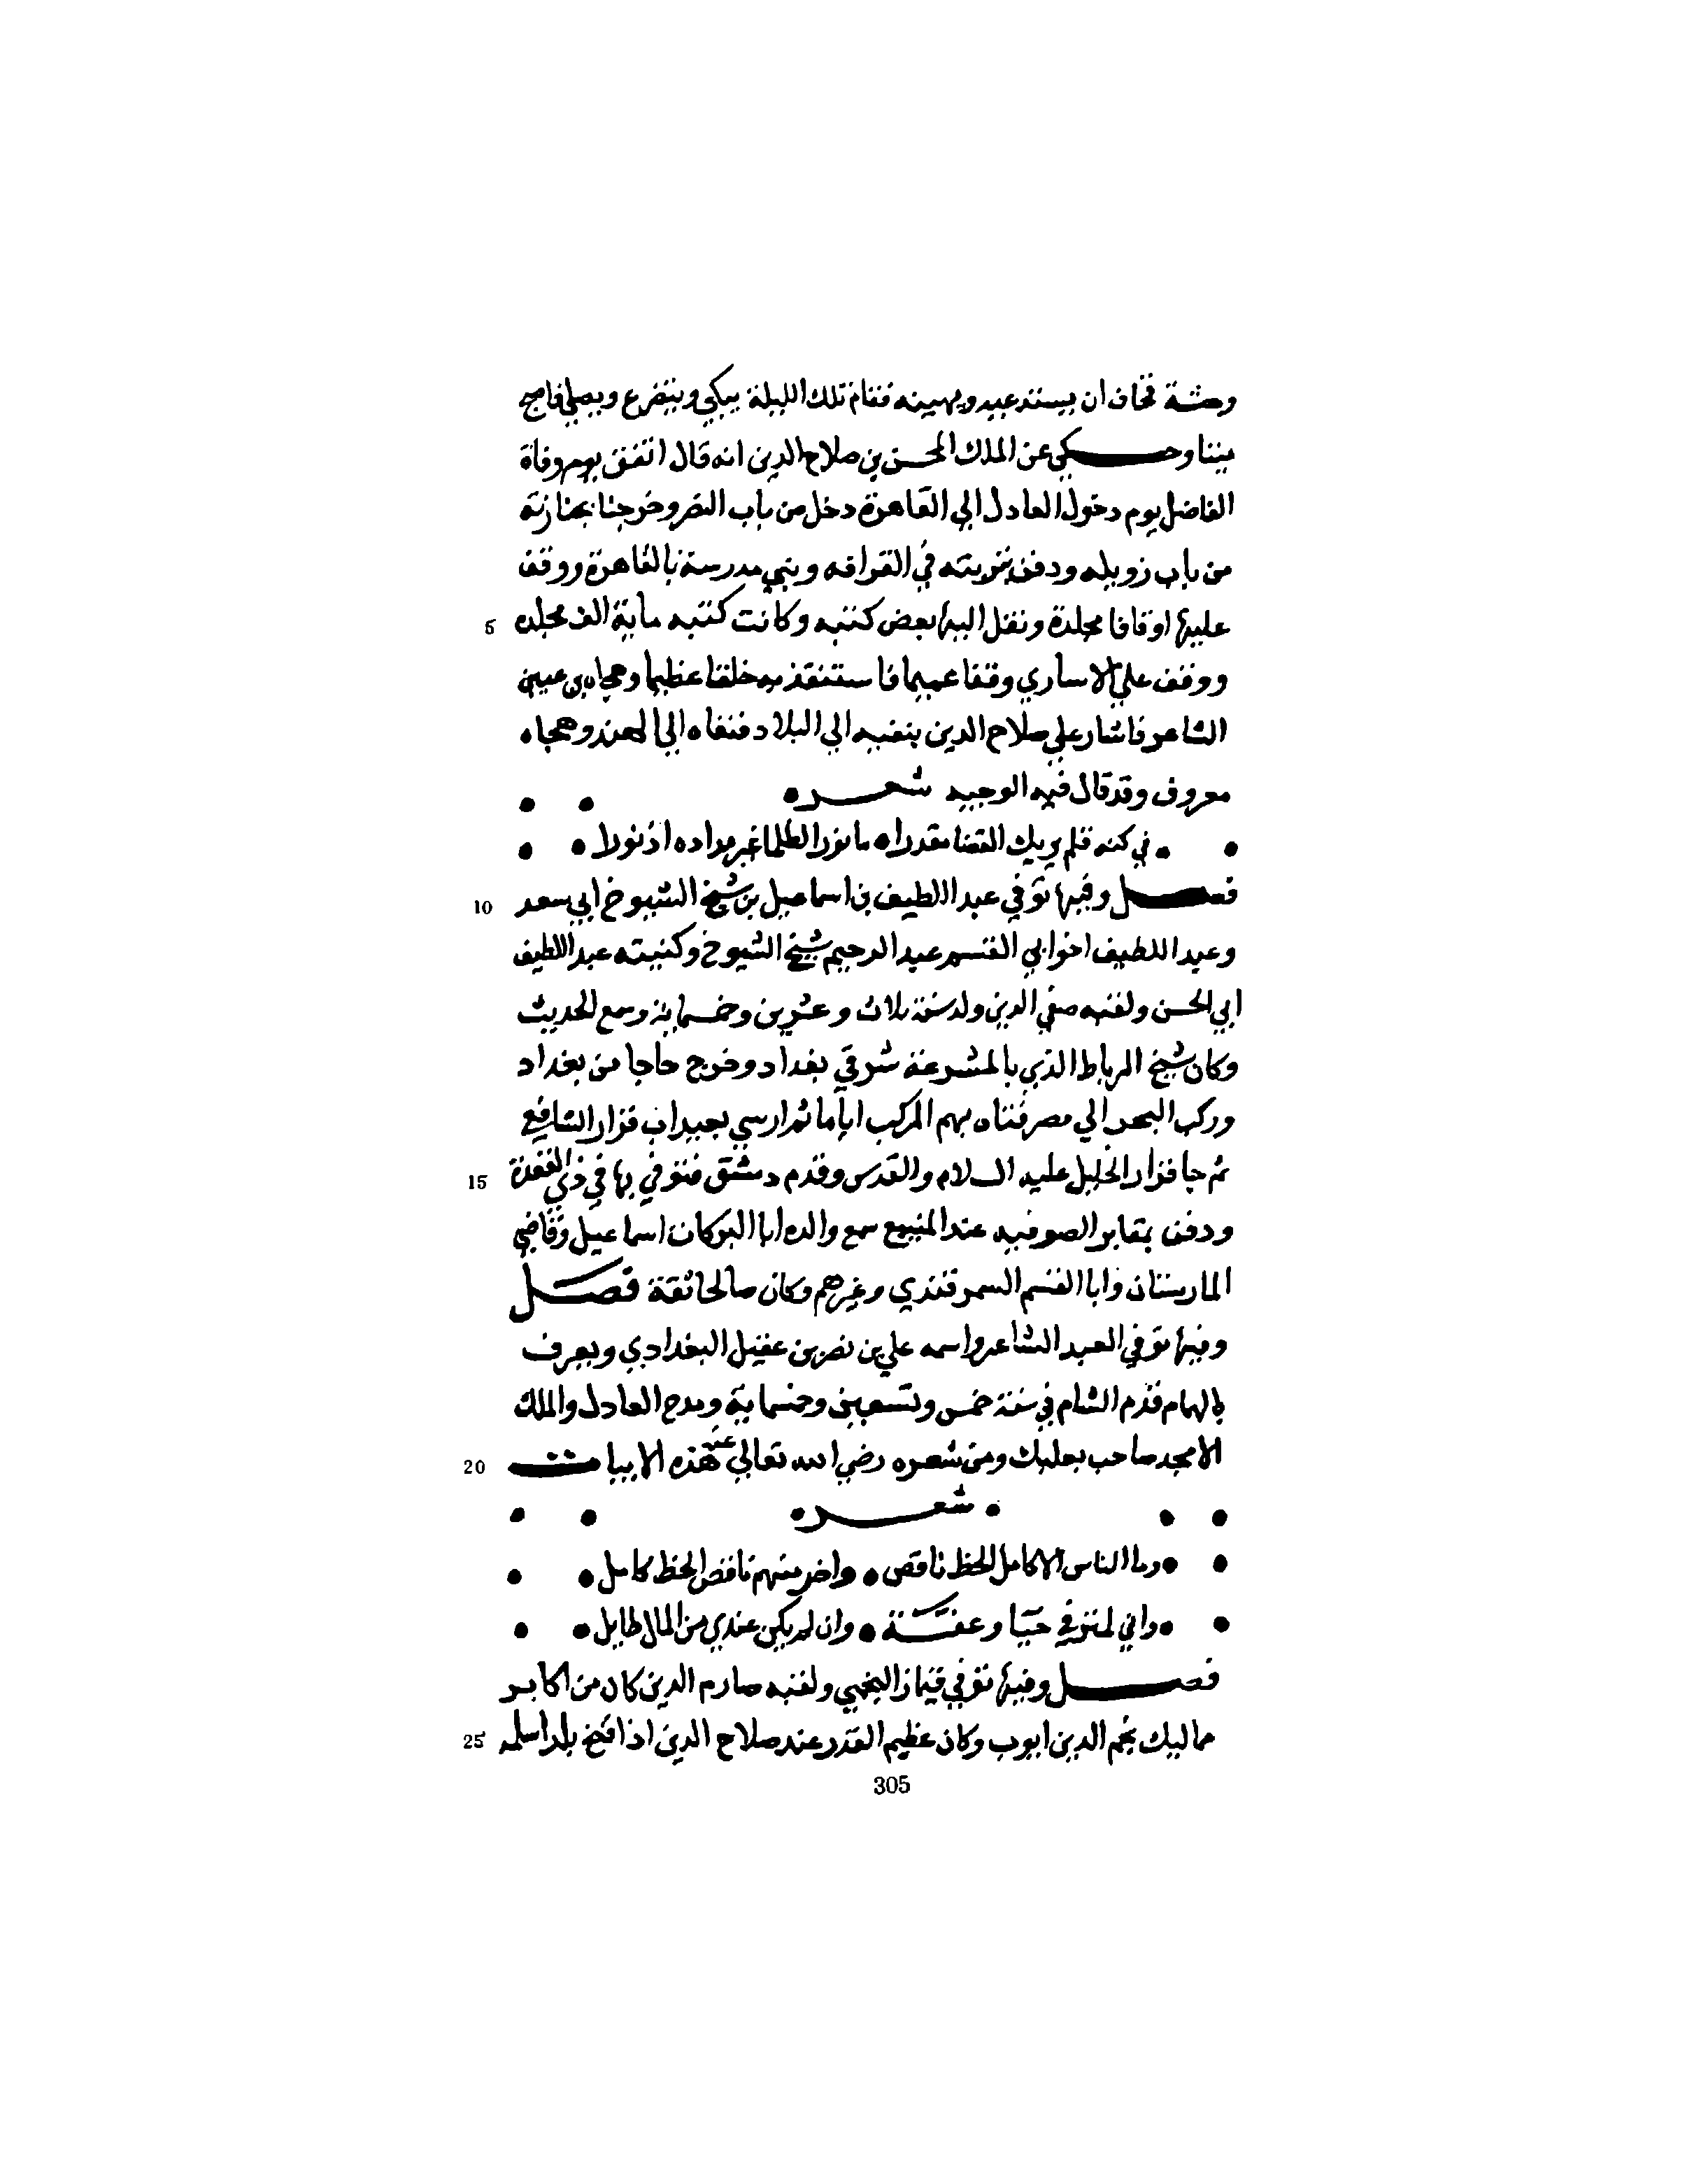 وحشة فخاف ان يستدعيه ويهينه فقام تلك الليلة يبكي ويتضرع ويصلي فاصبح
ميتا وحكي عن الملك المحسن بن صلاح الدين انه قال اتفق يوم وفاة
الفاضل يوم دخول العادل الي القاهرة دخل من باب النصر وخرجنا بجنازته
من باب زويله ودفن بتربته في القرافه وبني مدرسة بالقاهرة ووقف
عليها اوقافا مجلدة ونقل اليها بعض كتبه وكانت كتبه ماية الف مجلده 5
ووقف علي الاساري وقفا عميما فاستنقذ به خلقا عظيما وهجاه بن عنين
الشاعر فاشار علي صلاح الدين بنفيه الي البلاد فنفاه الي الهند وهجاه
معروف وقد قال فيه الوجيه شعره
في كفه قلم يريك القضا مقدراه ما نور الظلما غير مداده اذ نورا
فصل وفيها توفي عبد اللطيف بن اسماعيل بن شيخ الشيوخ ابي سعد 10
وعبد اللطيف اخو ابي القسم عبد الرحيم شيخ الشيوخ وكنيته عبد اللطيف
ابي الحسن ولقبه صفي الدين ولد سنة ثلاث وعشرين وخمسماية وسمع الحديث
وكان شيخ الرباط الذي بالمشرعة شرقي بغداد وخرج حاجا من بغداد
وركب البحر الي مصر فتاه بهم المركب اياما ثم ارسي بعيداب فزار الشافعي
ثم جا فزار الخليل عليه السلام والقدس وقدم دمشق فتوفي بها في ذي القعدة 15
ودفن بمقابر الصوفيه عند المنيبع سمع والده ابا البركات اسماعيل وقاضي
المارستان وابا القسم السمرقندي وغيرهم وكان صالحا ثقة فصل
وفيها توفي العبد الشاعر واسمه علي بن نصر بن عقيل البغدادي ويعرف
بالهمام قدم الشام في سنة خمس وتسعين وخمسماية ومدح العادل والملك
الامجد صاحب بعلبك ومن شعره رضي الله تعالي عنه هذه الابيات 20
شعره
وما الناس الا كامل الحظ ناقص واخر منهم ناقص الحظ كامل
واني لمثر في حيا وعفة وان لم يكن عندي من المال طايل
فصل وفيها توفي قيماز النجمي ولقبه صارم الدين كان من اكابر
مماليك نجم الدين ايوب وكان عظيم القدر عند صلاح الدين اذا فتح بلدا سلمه 25
305